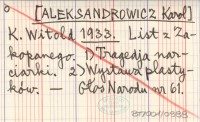 [ALEKSANDROWICZ Karol]
K. Witold 1933. List z Za-
kopanego. 1) Tragedja nar-
ciarki. 2) Wystawa plasty-
ków. — Głos Narodu nr 61.